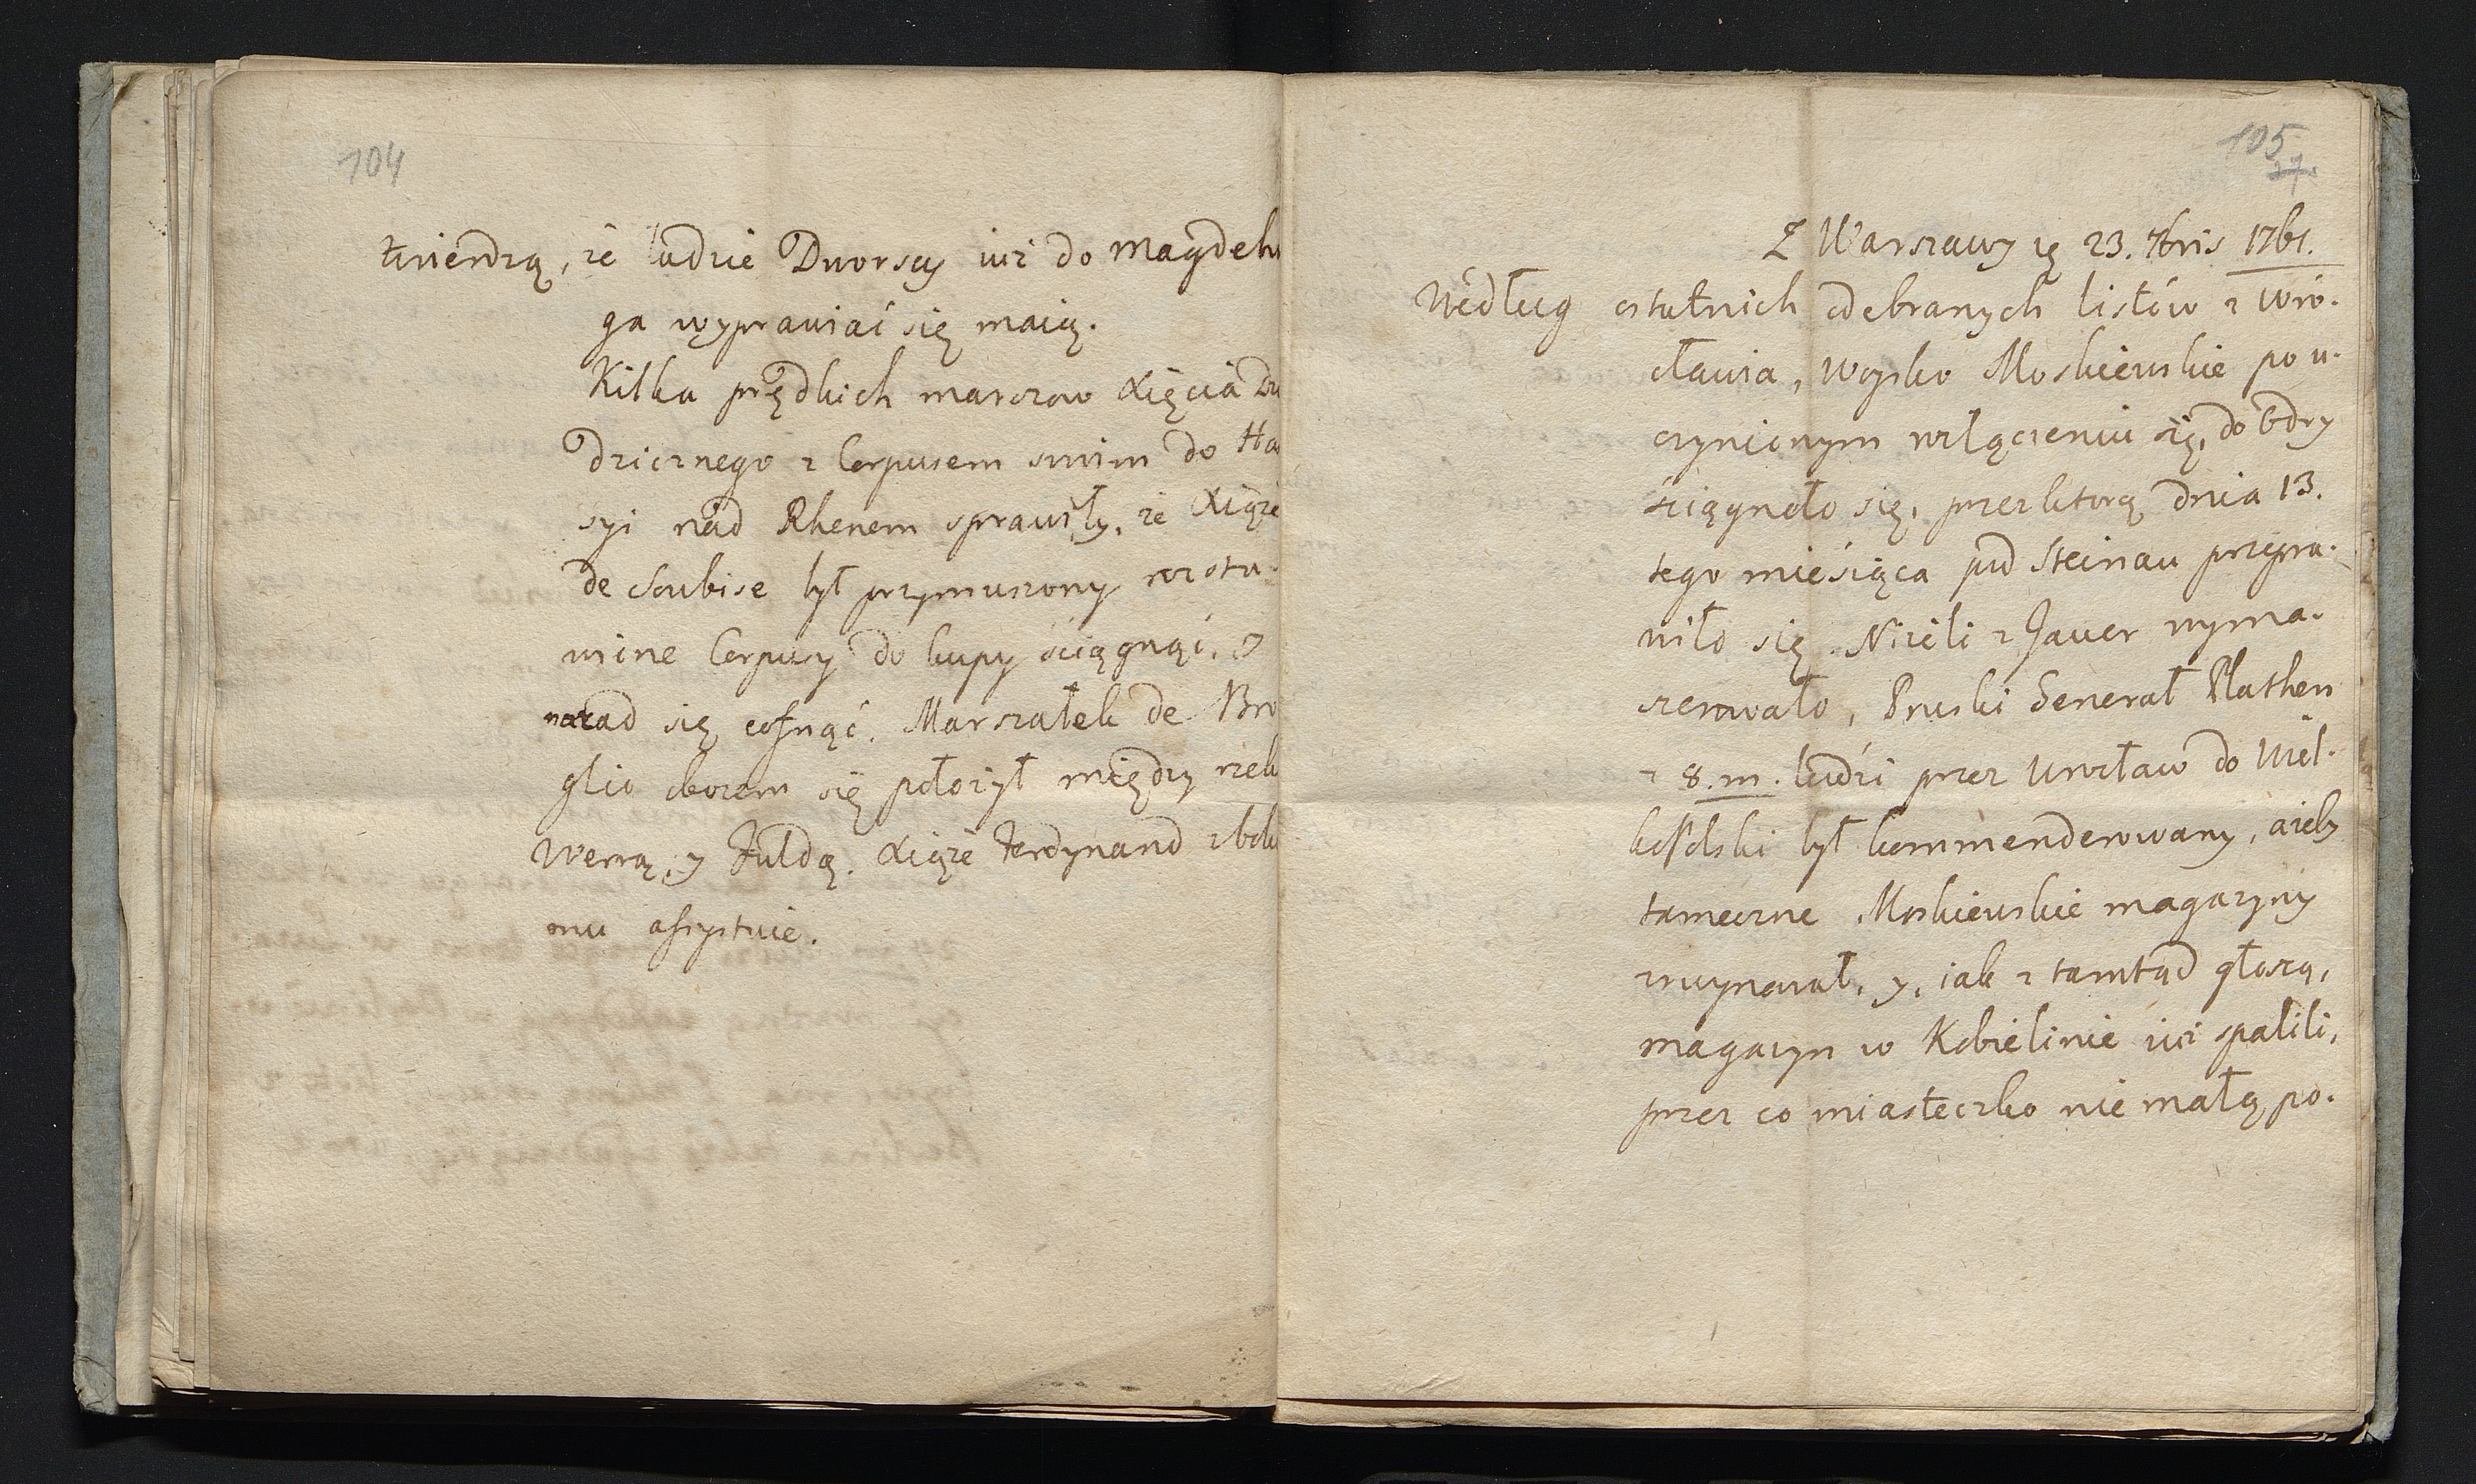 104
twierdzą, że ludzie Dworscy iuż do Magdebu
ga wyprawiać się maią.
Kilka prędkich marszow Xięcia Dzie
dzicznego z Corpusem swim do Has
syi nad Rhenem sprawiły, że Xiąże
de Soubise był przymuszony rozsta-
wine Corpusy do kupy ściągnąć, y
nazad się cofnąć. Marszałek de Bro
glio oborem się położył między rzek
Werrą, y Fuldą. Xiąże Ferdynand zbok
mu assystuie.
105
27
Z Warszawy ię 23. 7bris 1761.
Według ostatnich odebranych listów z Wro-
cławia, Woysko Moskiewskie po u-
czynionym rozłączeniu się, do Odry
ściągneło się, przez ktorą dnia 13.
tego miesiąca pod Steinau przepra-
wiło się. Niżeli z Jauer wyma-
szerowało, Pruski Generał Plathen
z 8.m. ludzi przez Wrocław do Wiel-
koPolski był kommenderowany, ażeby
tameczne Moskiewskie magazyny
zruynował, y, iak z tamtąd głoszą,
magazyn w Kobielinie iuż spalili,
przez co miasteczko nie małą po-